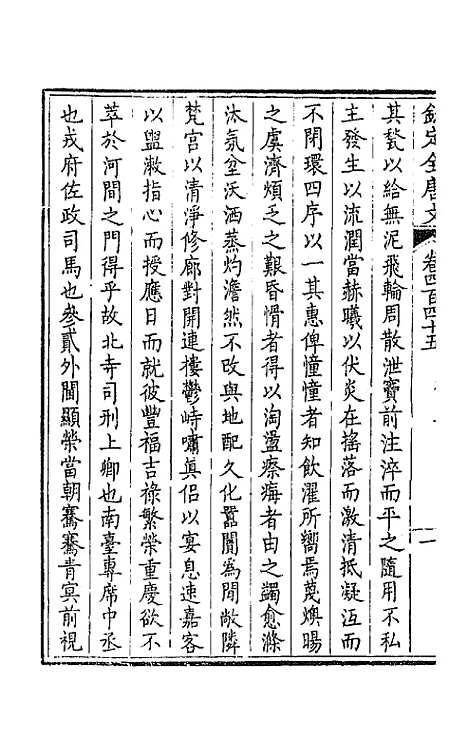 欽定全唐文
卷四百四十五
一
其甃以給無泥飛輪周散泄竇前注淬而平之隨用不私
主發生以流潤當赫曦以伏炎在搖落而激清抵凝冱而
不閉環四序以一其惠俾憧憧者知飲濯所嚮焉蔑燠暘
之虞濟煩乏之艱昏慣者得以淘盪瘵痗者由之蠲愈滌
汰氛坌沃洒蒸灼澹然不改與地配久化囂闤為閒敞隣
梵宮以清淨修廊對開連樓鬱峙嘯眞侶以宴息速嘉客
以盥漱指心而授應日而就彼豐福吉祿繁榮重慶欲不
萃於河間之門得乎故北寺司刑上卿也南臺專席中丞
也戎府佐政司馬也參貳外閫顯榮當朝騫騫青冥前視